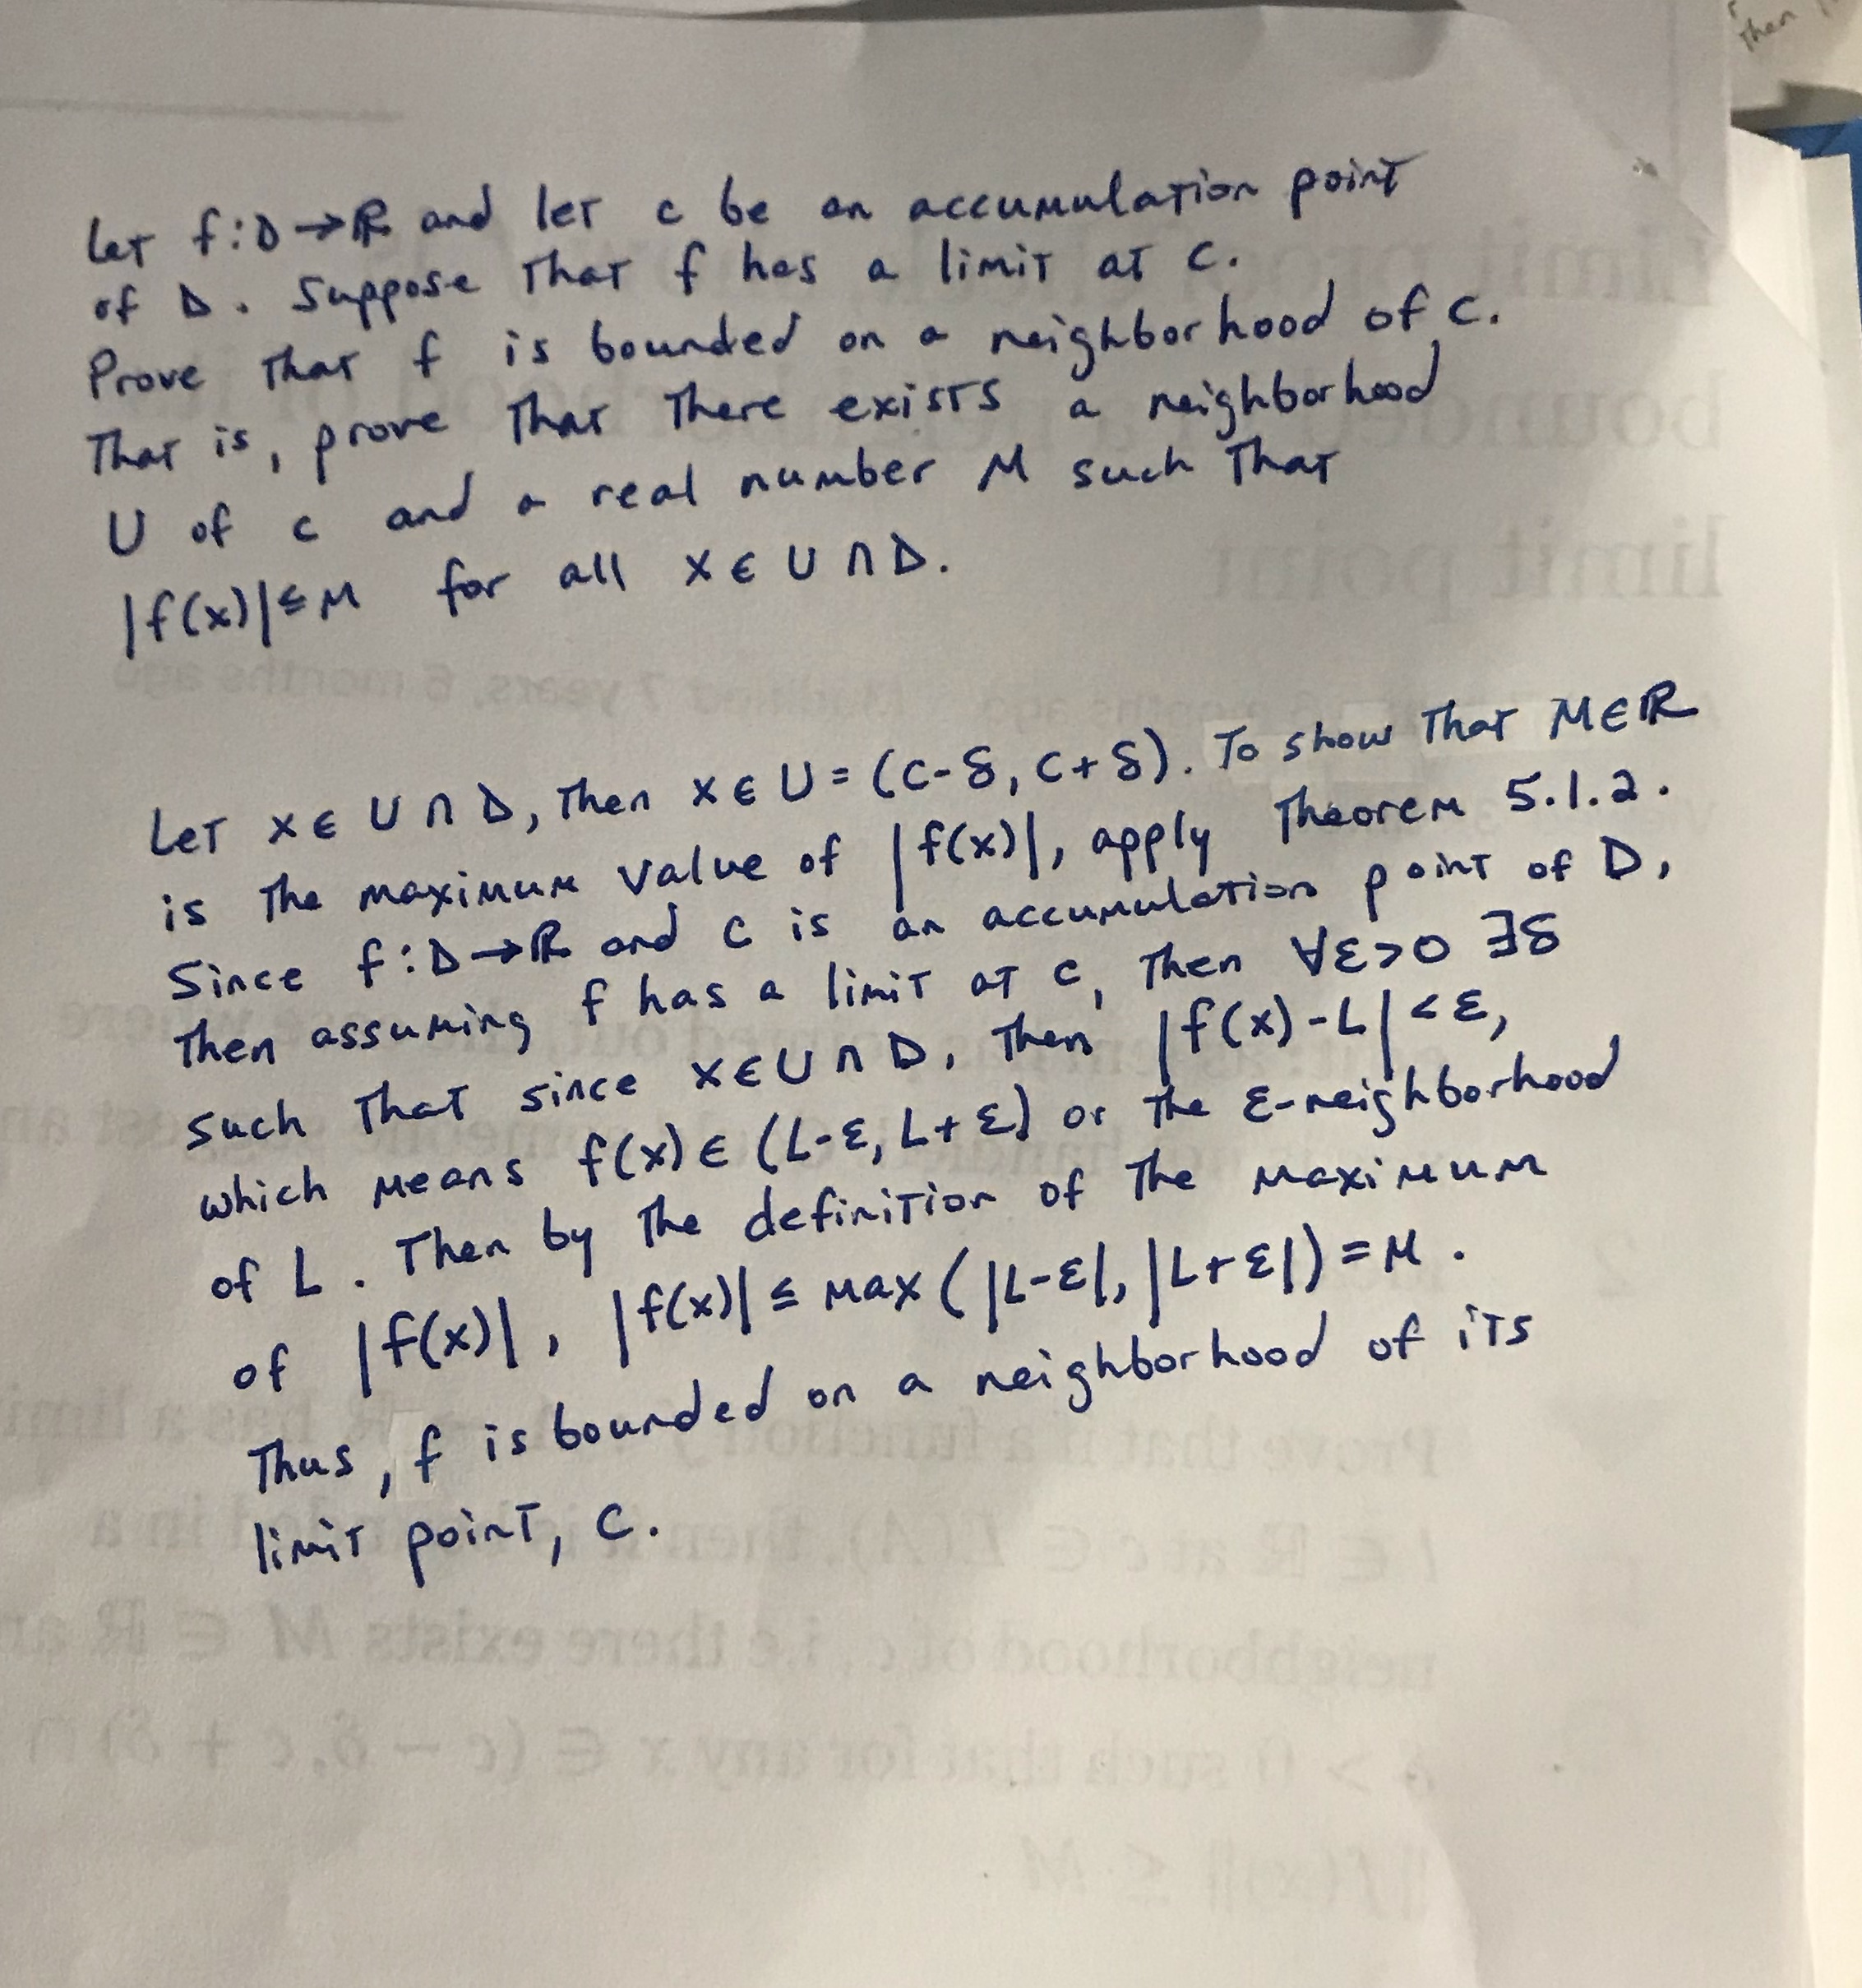 Then
Let f:D→ℝ and let c be an accumulation point
of D. Suppose that f has a limit at c.
Prove that f is bounded on a neighborhood of c.
That is, prove that there exists a neighborhood
U of c and a real number M such that
|f(x)|≤M for all x∈U∩D.
Let x∈U∩D, then x∈U=(c-δ,c+δ). To show that M∈ℝ
is the maximum value of |f(x)|, apply Theorem 5.1.2.
Since f:D→ℝ and c is an accumulation point of D,
then assuming f has a limit at c, then ∀ε>0 ∃δ
such that since x∈U∩D, then |f(x)-L|<ε,
which means f(x)∈(L-ε,L+ε) or the ε-neighborhood
of L. Then by the definition of the maximum
of |f(x)|, |f(x)|≤max(|L-ε|,|L+ε|)=M.
Thus, f is bounded on a neighborhood of its
limit point, c.